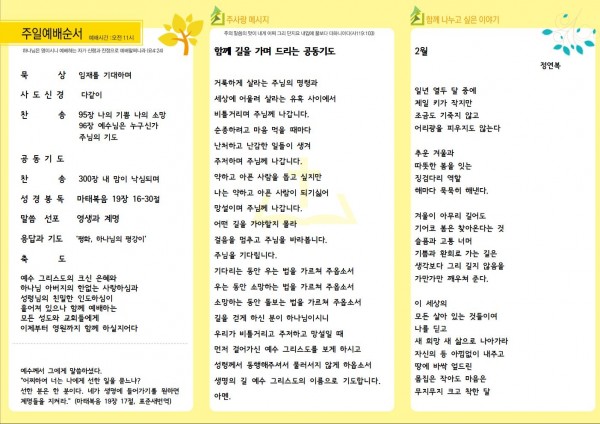 주일예배순서 예배시간 : 오전11시
하나님은 영이시니 예배하는 자가 신령과 진정으로 예배할찌니라 (요4:24)
묵 상 임재를 기대하며
사 도 신 경 다같이
찬 송 95장 나의 기쁨 나의 소망
96장 예수님은 누구신가
주님의 기도
공 동 기 도
찬 송 300장 내 맘이 낙심되며
성 경 봉 독 마태복음 19장 16-30절
말씀 선포 영생과 계명
응답과 기도 '평화, 하나님의 평강이'
축 도
예수 그리스도의 크신 은혜와
하나님 아버지의 한없는 사랑하심과
성령님의 친밀한 인도하심이
흩어져 있으나 함께 예배하는
모든 성도와 교회들에게
이제부터 영원까지 함께 하실지어다
예수께서 그에게 말씀하셨다.
"어찌하여 너는 나에게 선한 일을 묻느냐?
선한 분은 한 분이다. 네가 생명에 들어가기를 원하면
계명들을 지켜라." (마태복음 19장 17절, 표준새번역)
주사랑 메시지
주의 말씀의 맛이 내게 어찌 그리 단지요 내 입에 꿀보다 더하니이다(시119:103)
함께 길을 가며 드리는 공동기도
거룩하게 살라는 주님의 명령과
세상에 어울려 살라는 유혹 사이에서
비틀거리며 주님께 나갑니다.
순종하려고 마음 먹을 때마다
난처하고 난감한 일들이 생겨
주저하며 주님께 나갑니다.
약하고 아픈 사람을 돕고 싶지만
나는 약하고 아픈 사람이 되기싫어
망설이며 주님께 나갑니다.
어떤 길을 가야할지 몰라
걸음을 멈추고 주님을 바라봅니다.
주님을 기다립니다.
기다리는 동안 우는 법을 가르쳐 주옵소서
우는 동안 소망하는 법을 가르쳐 주옵소서
소망하는 동안 돌보는 법을 가르쳐 주옵소서
길을 걷게 하신 분이 하나님이시니
우리가 비틀거리고 주저하고 망설일 때
먼저 걸어가신 예수 그리스도를 보게 하시고
성령께서 동행해주셔서 물러서지 않게 하옵소서
생명의 길 예수 그리스도의 이름으로 기도합니다.
아멘.
함께 나누고 싶은 이야기
2월
정연복
일년 열두 달 중에
제일 키가 작지만
조금도 기죽지 않고
어리광을 피우지도 않는다
추운 겨울과
따뜻한 봄을 잇는
징검다리 역할
해마다 묵묵히 해낸다.
겨울이 아무리 길어도
기어코 봄은 찾아온다는 것
슬픔과 고통 너머
기쁨과 환희로 가는 길은
생각보다 그리 길지 않음을
가만가만 깨우쳐 준다.
이 세상의
모든 살아 있는 것들이여
나를 딛고
새 희망 새 삶으로 나아가라
자신의 등 아낌없이 내주고
땅에 바싹 엎드린
몸집은 작아도 마음은
무지무지 크고 착한 달